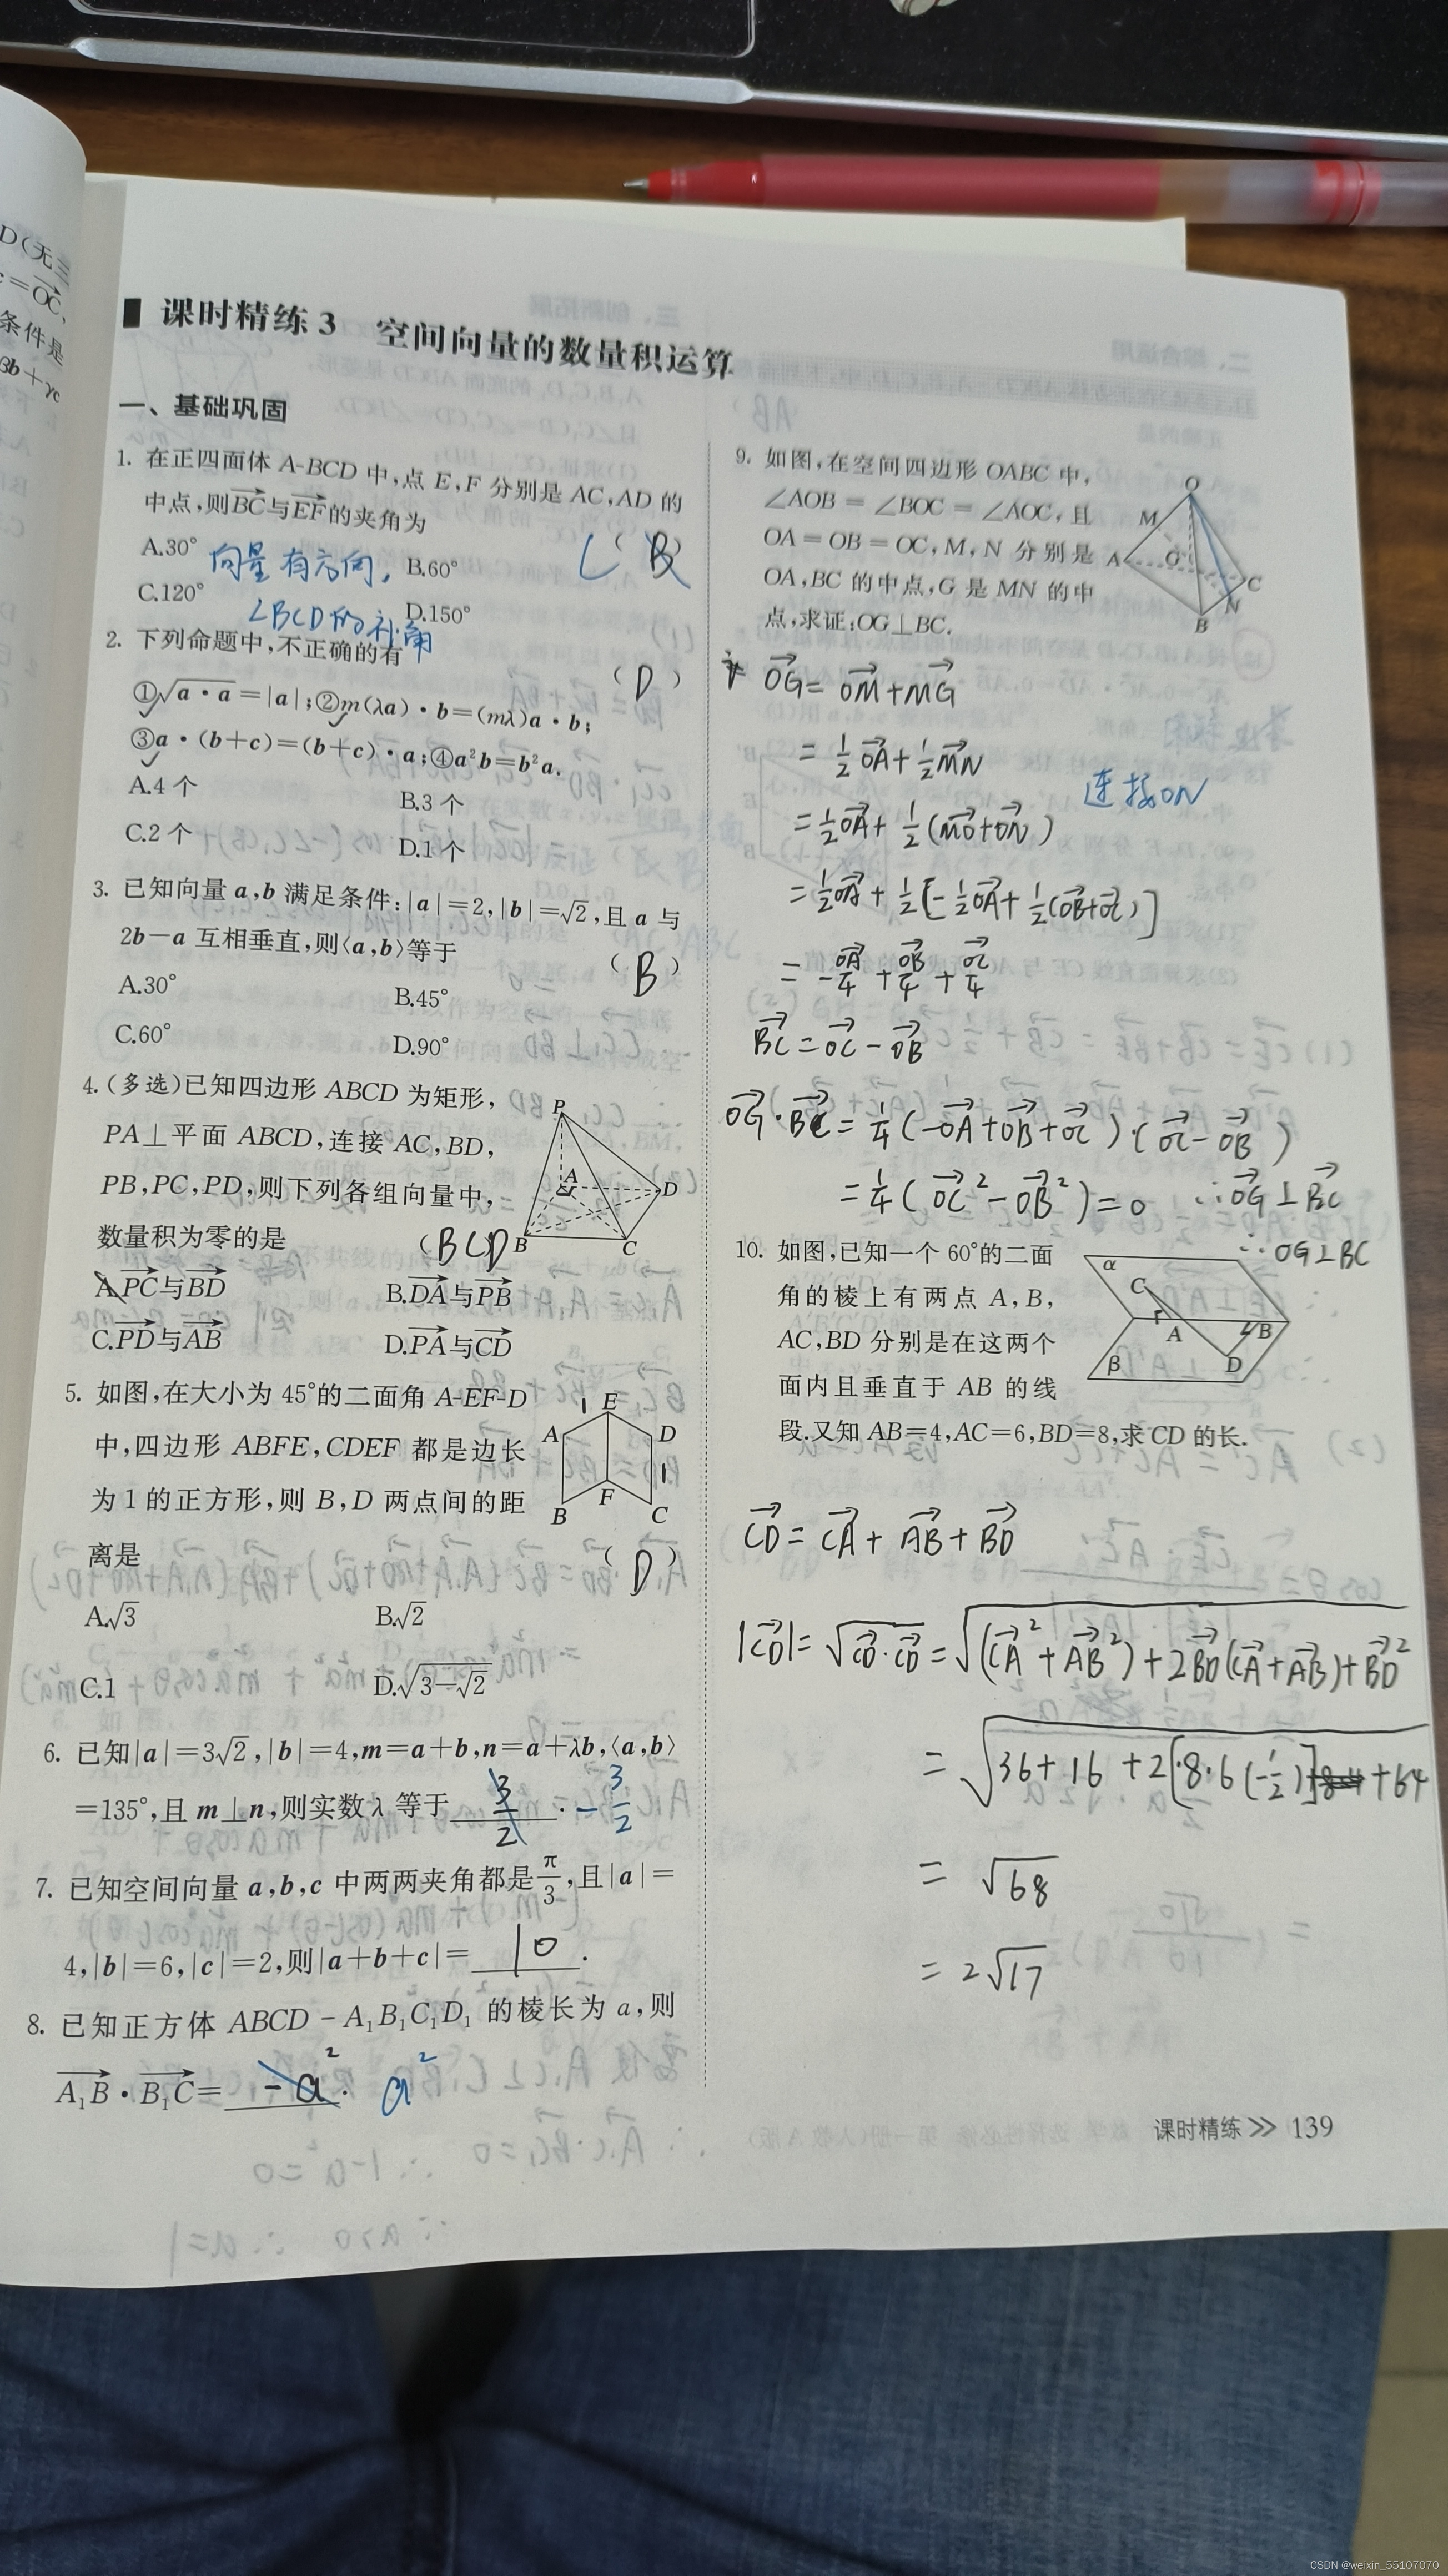 D(无三
c=OC、
条件是
βb+γc
课时精练3 空间向量的数量积运算
一、基础巩固
1. 在正四面体 A-BCD 中,点 E,F 分别是 AC,AD 的
中点,则BC与EF的夹角为
C ( B )
A.30° B.60°
向量有方向,
C.120° D.150°
∠BCD的补角
2. 下列命题中,不正确的有
( D )
①√a·a=|a|;②m(λa)·b=(mλ)a·b;
③a·(b+c)=(b+c)·a;④a²b=b²a.
A.4 个 B.3 个
C.2 个 D.1 个
3. 已知向量 a,b 满足条件:|a|=2,|b|=√2,且 a 与
2b-a 互相垂直,则⟨a,b⟩等于
( B )
A.30° B.45°
C.60° D.90°
4.(多选)已知四边形 ABCD 为矩形,
PA⊥平面 ABCD,连接 AC,BD,
PB,PC,PD,则下列各组向量中,
数量积为零的是
( BCD
P
A
D
B
C
A.PC与BD B.DA与PB
C.PD与AB D.PA与CD
5. 如图,在大小为 45°的二面角 A-EF-D
中,四边形 ABFE,CDEF 都是边长
为 1 的正方形,则 B,D 两点间的距
离是
( D )
1 E
A D
1
F
B C
A.√3 B.√2
C.1 D.√3-√2
6. 已知|a|=3√2,|b|=4,m=a+b,n=a+λb,⟨a,b⟩
=135°,且 m⊥n,则实数 λ 等于 3/2 . -3/2
7. 已知空间向量 a,b,c 中两两夹角都是π/3,且|a|=
4,|b|=6,|c|=2,则|a+b+c|= 10 .
8. 已知正方体 ABCD-A₁B₁C₁D₁ 的棱长为 a,则
A₁B·B₁C= -a² . a²
9. 如图,在空间四边形 OABC 中,
∠AOB=∠BOC=∠AOC,且
OA=OB=OC,M,N 分别是
OA,BC 的中点,G 是 MN 的中
点,求证:OG⊥BC.
O
M
A G C
N
B
OG=OM+MG
=½OA+½MN
连接ON
=½OA+½(MO+ON)
=½OA+½[-½OA+½(OB+OC)]
=-OA/4+OB/4+OC/4
BC=OC-OB
OG·BC=¼(-OA+OB+OC)·(OC-OB)
=¼(OC²-OB²)=0 ∴OG⊥BC
∴OG⊥BC
10. 如图,已知一个 60°的二面
角的棱上有两点 A,B,
AC,BD 分别是在这两个
面内且垂直于 AB 的线
段.又知 AB=4,AC=6,BD=8,求 CD 的长.
α
C
A B
β D
CD=CA+AB+BD
|CD|=√CD·CD=√(CA²+AB²)+2BD(CA+AB)+BD²
=√36+16+2[8·6(-½)]+64
=√68
=2√17
课时精练≫ 139
CSDN @weixin_55107070